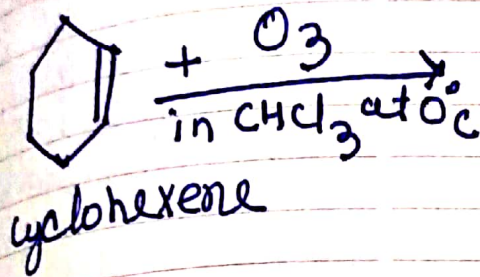 + O3
in CHCl3 at 0°C
cyclohexene